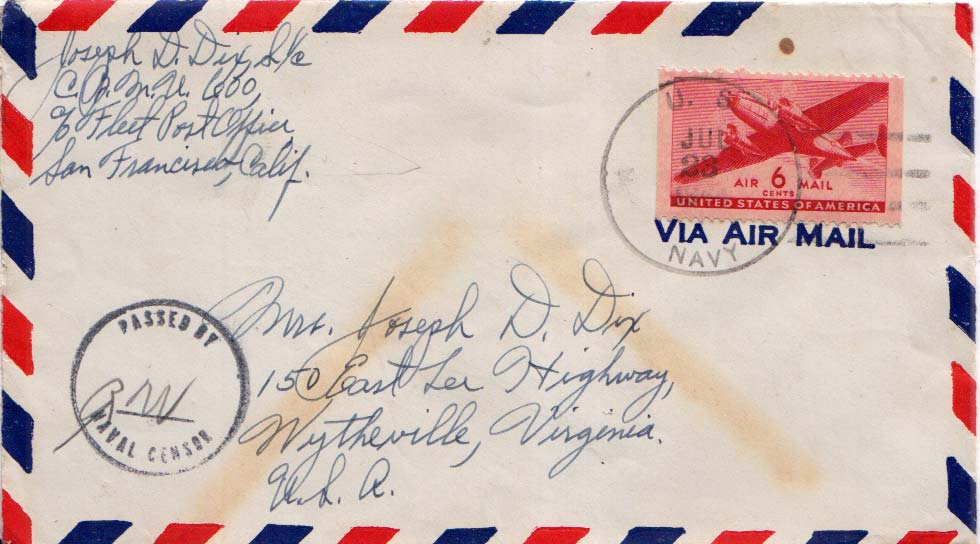 Joseph D. Dix, S/c
C.B.M.U. 600,
℅ Fleet Post Office
San Francisco, Calif.
U. S.
JUL
23
AIR 6 MAIL
CENTS
UNITED STATES OF AMERICA
VIA AIR MAIL
NAVY
Mrs. Joseph D. Dix
150 East Lee Highway,
Wytheville, Virginia.
U.S.A.
PASSED BY
NAVAL CENSOR